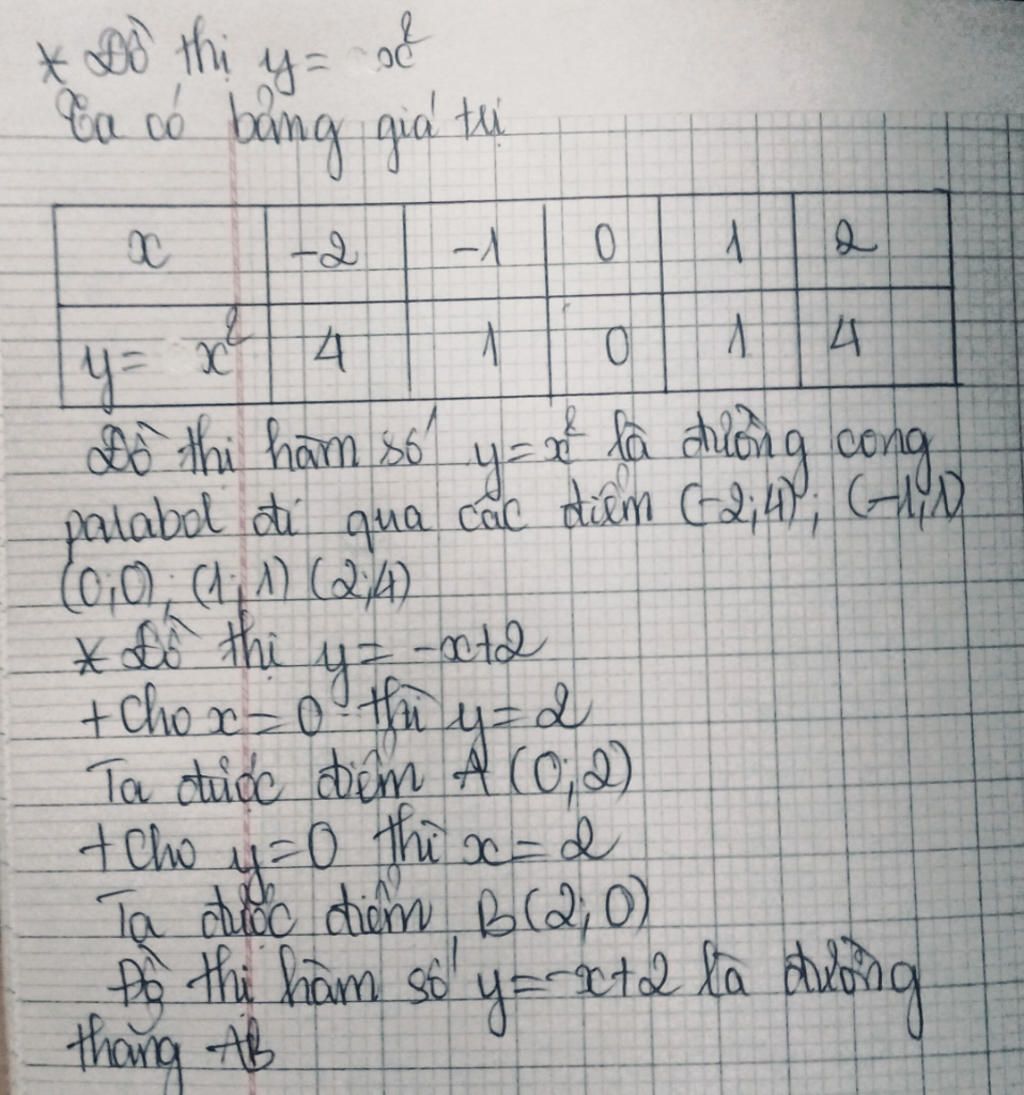 * Đồ thị y = x²
Ta có bảng giá trị
x -2 -1 0 1 2
y = x² 4 1 0 1 4
Đồ thị hàm số y = x² là đường cong
parabol đi qua các điểm (-2;4); (-1;1)
(0;0); (1;1) (2;4)
* Đồ thị y = -x+2
+ Cho x = 0 thì y = 2
Ta được điểm A (0;2)
+ Cho y = 0 thì x = 2
Ta được điểm B(2;0)
Đồ thị hàm số y = -x+2 là đường
thẳng AB